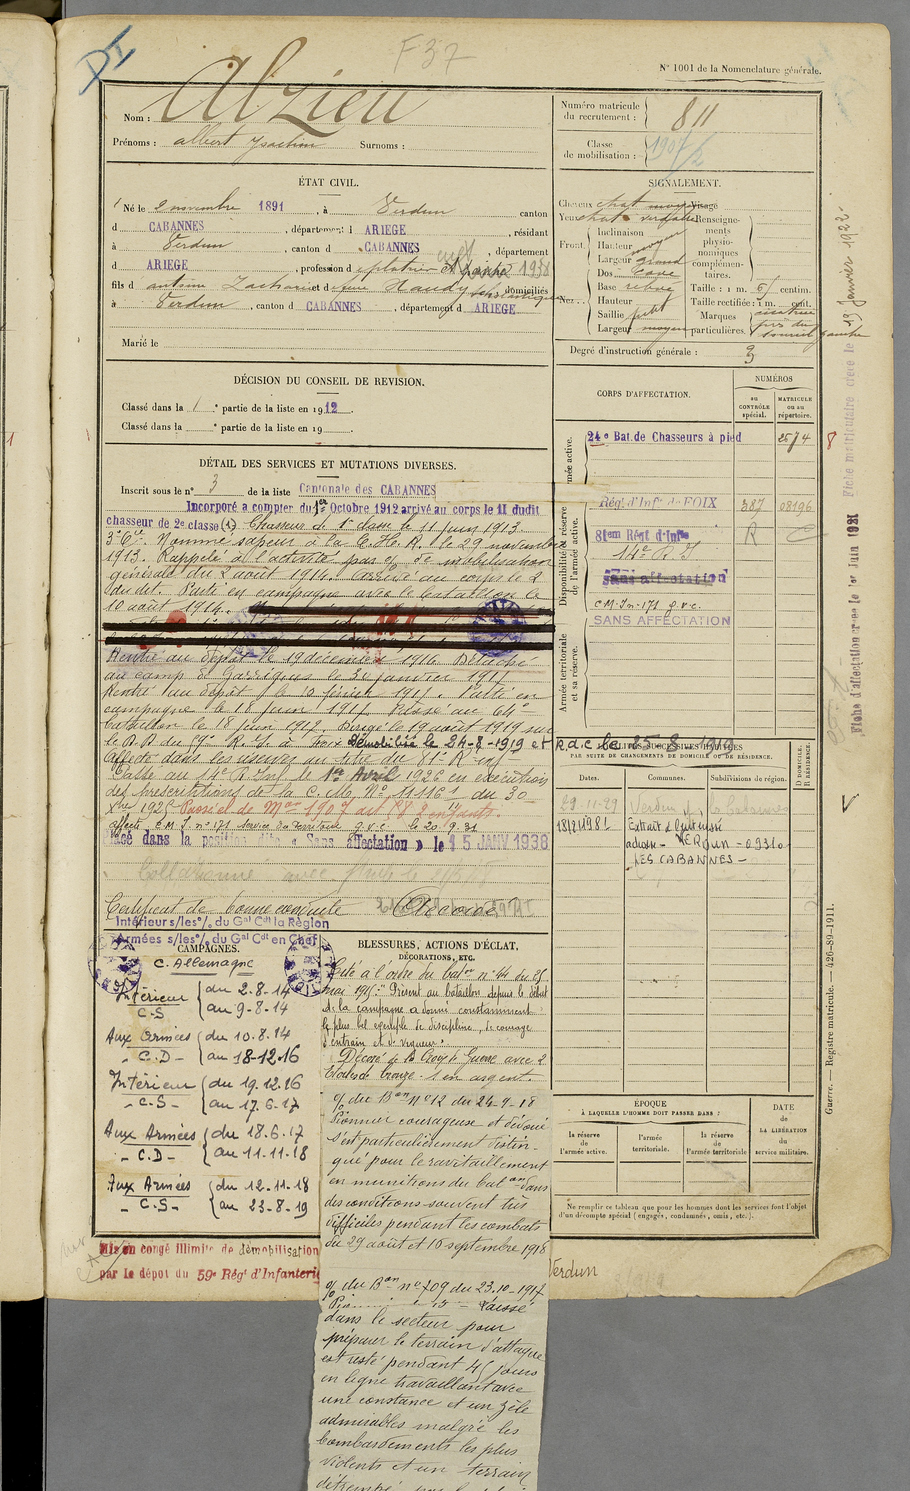 F37
N° 1001 de la Nomenclature générale.
Nom : Alzieu
Prénoms : Albert Joachim Surnoms :
Numéro matricule du recrutement : 811
Classe de mobilisation : 1907/2
ÉTAT CIVIL.
Né le 2 novembre 1891, à Verdun canton
d CABANNES, département d ARIEGE, résidant
à Verdun, canton d CABANNES, département
d ARIEGE, profession d 1938
fils d'Antoine Zacharie et de domiciliés
à Verdun, canton d CABANNES, département d ARIEGE
Marié le
DÉCISION DU CONSEIL DE REVISION.
Classé dans la 1e partie de la liste en 1912.
Classé dans la e partie de la liste en 19 .
DÉTAIL DES SERVICES ET MUTATIONS DIVERSES.
Inscrit sous le n° 3 de la liste Cantonale des CABANNES
Incorporé a compter du 1er Octobre 1912 arrivé au corps le 11 dudit
chasseur de 2e classe (1) Chasseur de 1e classe le 11 juin 1913.
3e Cie. Nommé sapeur à la C.H.R. le 29 novembre
1913. Rappelé à l'activité par of. de mobilisation
générale du 2 août 1914. Arrivé au corps le 2
du dit. Parti en campagne avec le bataillon le
10 août 1914.
Rentré au dépôt le 19 décembre 1916. Détaché
au camp de Garrigues le 30 janvier 1917
Rentré au dépôt le 12 février 1917. Parti en
campagne le 18 juin 1917. Passé au 64e
bataillon le 18 juin 1917. Dirigé le 19 août 1919 sur
le D.D. du 59e R.I. à Foix Démobilisé le 24-8-1919 et R.d.c. le 25-8-1919
Affecté dans les réserves au titre du 81e R. inf.
Passé au 14e R. Inf. le 1er Avril 1926 en exécution
des prescriptions de la C.M. No 11116 1/11 du 30
Xbre 1925 Passé cl de Mon 1907 art 58 2 enfants.
affecté C.M.I. n° 171 Service du Territoire g.v.c. le 20.9.31
Placé dans la position dite « Sans affectation » le 15 JANV 1938
Certificat de bonne conduite Accordé
Intérieur s/les o/. du Gal Cdt la Région
Armées s/les o/. du Gal Cdt en Chef
CAMPAGNES.
C. Allemagne
Intérieur C.S { du 2-8-14 au 9-8-14
Aux Armées - C.D - { du 10.8.14 au 18-12-16
Intérieur - C.S - { du 19.12.16 au 17.6.17
Aux Armées - C.D - { du 18.6.17 au 11-11-18
Aux Armées - C.S - { du 12-11-18 au 23-8-19
Mis en congé illimité de démobilisation
par le dépot du 59e Régt d'Infanterie
BLESSURES, ACTIONS D'ÉCLAT,
DÉCORATIONS, ETC.
Cité à l'ordre du baton n° 44 du 25
mai 1915. "Présent au bataillon depuis le début
de la campagne a donné constamment
le plus bel exemple de discipline, de courage
d'entrain et de vigueur".
Décoré de la Croix de Guerre avec 2
étoiles de bronze. 1 en argent.
% du Bon N° 12 du 24-9-18
Pionnier courageux et dévoué
S'est particulièrement distin-
gué pour le ravitaillement
en munitions du baton dans
des conditions souvent très
difficiles pendant les combats
du 29 août et 16 septembre 1918
% du Bon n° 709 du 23.10-1917
Laissé
dans le secteur pour
préparer le terrain d'attaque
est resté pendant 45 jours
en ligne travaillant avec
une constance et un zèle
admirables malgré les
bombardements les plus
violents et un terrain
SIGNALEMENT.
Cheveux chat Visage
Yeux chat verdatre Renseignements physionomiques complémentaires.
Front. Inclinaison moyen
Hauteur
Largeur grand
Nez. Dos cave
Base relevé
Hauteur
Saillie petit
Largeur moyen
Taille : 1 m. 61 centim.
Taille rectifiée : 1 m. cent.
Marques particulières. cicatrice près du sourcil gauche
Degré d'instruction générale : 3
CORPS D'AFFECTATION.
NUMÉROS
au CONTRÔLE spécial.
MATRICULE ou au répertoire.
Armée active.
24e Bat. de Chasseurs à pied 2574
Disponibilité et réserve de l'armée active.
Régt d'Infie de FOIX 387 08196
81em Régt d'Infie R
14e R.I
sans affectation
C.M.I n° 171 g.v.c.
SANS AFFECTATION
Armée territoriale et sa réserve.
LOCALITÉS SUCCESSIVES HABITÉES
PAR SUITE DE CHANGEMENTS DE DOMICILE OU DE RÉSIDENCE.
Dates. Communes. Subdivisions de région. D. DOMICILE. R. RÉSIDENCE.
29-11-29 Verdun
18/2/1981 Extrait
adressé - VERDUN - 09310
- LES CABANNES -
ÉPOQUE
À LAQUELLE L'HOMME DOIT PASSER DANS :
la réserve de l'armée active.
l'armée territoriale.
la réserve de l'armée territoriale
DATE de LA LIBÉRATION du service militaire.
Ne remplir ce tableau que pour les hommes dont les services font l'objet
d'un décompte spécial (engagés, condamnés, omis, etc.).
Verdun
Guerre. — Registre matricule. — 426-89-1911.
Fiche d'affectation créée le 1er Juin 1931
Fiche matriculaire créée le 13 Janvier 1922.